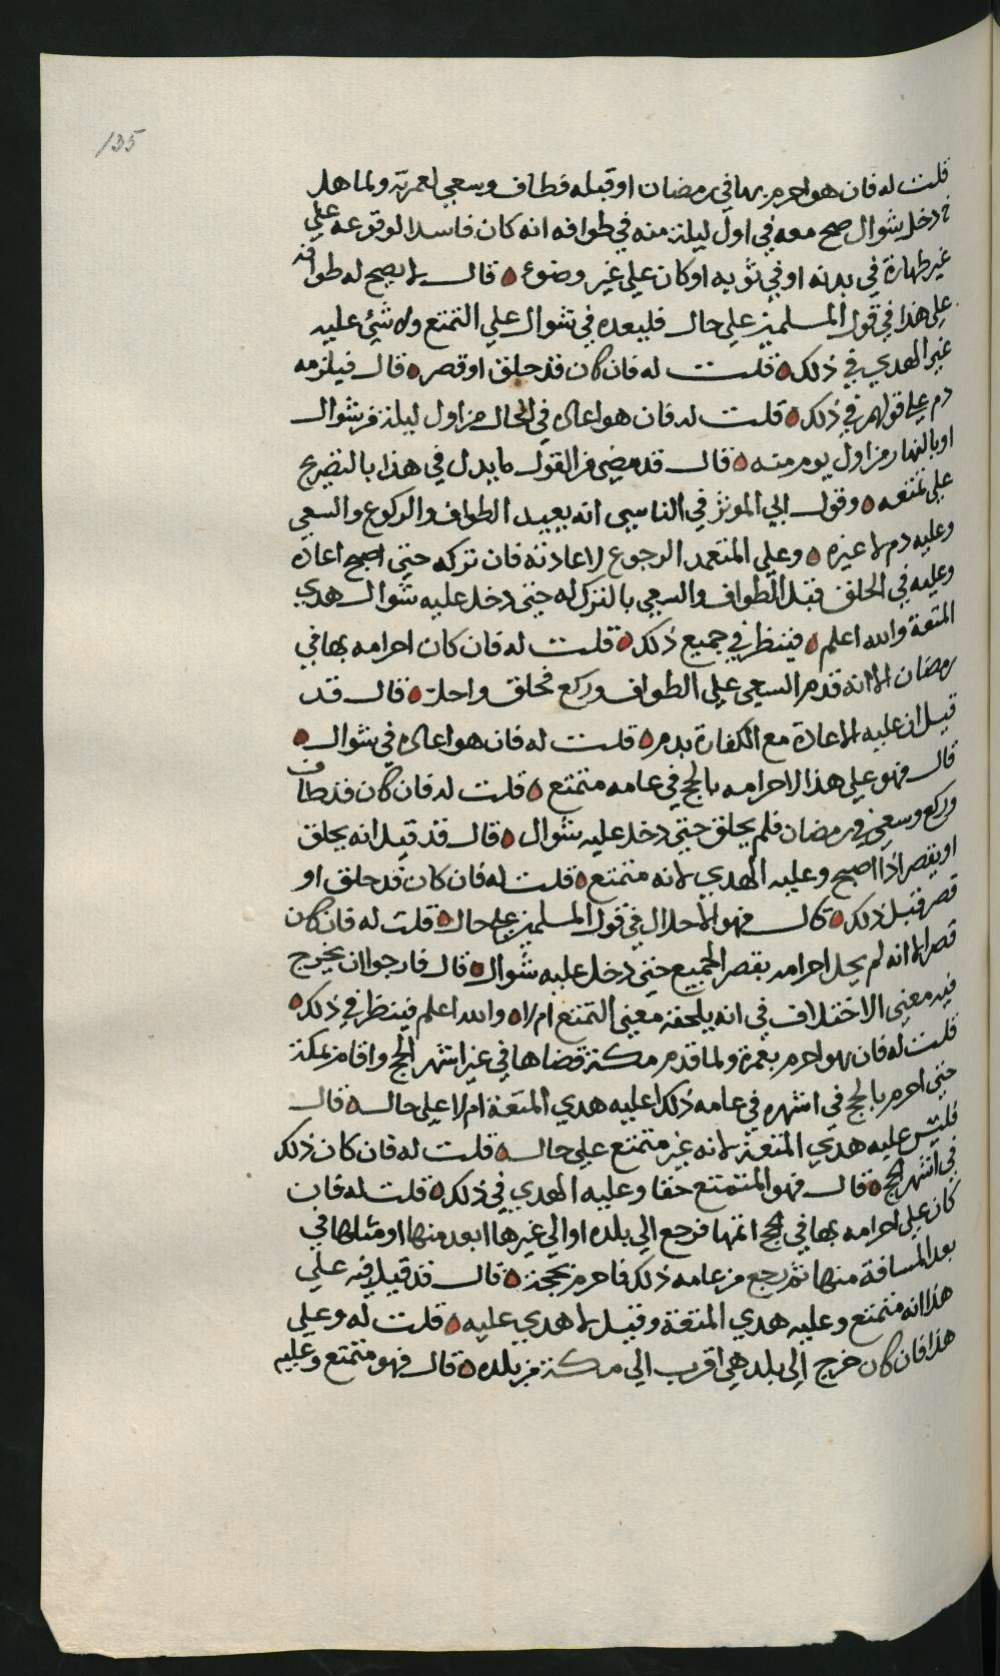 135
قلت له فان هو احرم بها في رمضان او قبله فطاف وسعي لعمرته ولما هل
دخل شوال صح معه في اول ليلة منه في طوافه انه كان فاسدا لوقوعه علي
غير طهارة في بدنه او في ثوبه او كان علي غير وضوء ه قال لا يصح له طوافه
علي هذا في قول المسلمين علي حال فليعده في شوال علي التمتع ولا شيئ عليه
غير الهدي في ذلك ه قلت له فان كان قد حلق او قصر ه قال فيلزمه
دم علي قولهم في ذلك ه قلت له فان هو اعاده في الحال من اول ليلة من شوال
او بالنهار من اول يوم منه ه قال قد مضي من القول ما يدل في هذا بالتصريح
علي تمتعه ه وقول ابي الموثر في الناسي انه يعيد الطواف والركوع والسعي
وعليه دم لا غيره ه وعلي المتعمد الرجوع لاعادته فان تركه حتي اصبح اعاده
وعليه في الحلق قبل الطواف والسعي بالترك له حتي دخل عليه شوال هدي
المتعة والله اعلم ه فينظر في جميع ذلك ه قلت له فان كان احرامه بها في
رمضان الا انه قدم السعي علي الطواف وركع فحلق واحل ه قال قد
قيل ان عليه الاعادة مع الكفارة بدم ه قلت له فان هو اعاده في شوال ه
قال فهو علي هذا الاحرامه بالحج في عامه متمتع ه قلت له فان كان قد طاف
وركع وسعي في رمضان فلم يحلق حتي دخل عليه شوال ه قال قد قيل انه يحلق
او يقصر اذا اصبح وعليه الهدي لانه متمتع ه قلت له فان كان قد حلق او
قصر قبل ذلك ه قال فهو الاحلال في قول المسلمين علي حال ه قلت له فان كان
قصر الا انه لم يحل احرامه بقصر الجميع حتي دخل عليه شوال ه قال فارجوا ان يخرج
فيه معني الاختلاف في انه يلحقه معني التمتع ام لا ه والله اعلم فينظر في ذلك ه
قلت له فان هو احرم بعمرة ولما قدم مكة قضاها في غير اشهر الحج واقام بمكة
حتي احرم بالحج في اشهره في عامه ذلك اعليه هدي المتعة ام لا علي حال ه قال
فليس عليه هدي المتعة لانه غير متمتع علي حال ه قلت له فان كان ذلك
في اشهر الحج ه قال فهو المتمتع حقا وعليه الهدي في ذلك ه قلت له فان
كان علي احرامه بها في الحج اتمها فرجع الي بلده او الي غيرها ابعد منها او مثلها في
بعد المسافة منها ثم رجع من عامه ذلك فاحرم بحجة ه قال قد قيل فيه علي
هذا انه متمتع وعليه هدي المتعة وقيل لا هدي عليه ه قلت له وعلي
هذا فان كان خرج الي بلد هي اقرب الي مكة من بلده ه قال فهو متمتع وعليه